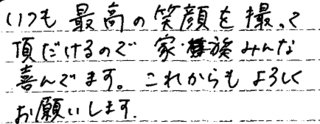 いつも最高の笑顔を撮って
頂だけるので家族みんな
喜んでます。これからもよろしく
お願いします.